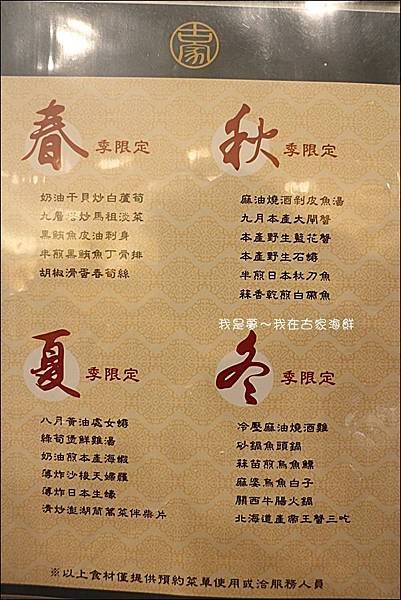 古家
春 季限定
奶油干貝炒白蘆筍
九層塔炒馬祖淡菜
黑鮪魚皮油刺身
半煎黑鮪魚丁骨排
胡椒滑蛋春筍絲
秋 季限定
麻油燒酒剝皮魚湯
九月本產大閘蟹
本產野生藍花蟹
本產野生石蟳
半煎日本秋刀魚
蒜香乾煎白帶魚
我是夢～我在古家海鮮
夏 季限定
八月黃油處女蟳
綠筍煲鮮雞湯
奶油煎本產海蝦
薄炸沙梭天婦羅
薄炸日本生蠔
清炒澎湖茼蒿菜伴柴片
冬 季限定
冷壓麻油燒酒雞
砂鍋魚頭鍋
蒜苗煎烏魚鰾
麻婆烏魚白子
關西牛腸火鍋
北海道產帝王蟹三吃
※以上食材僅提供預約菜單使用或洽服務人員